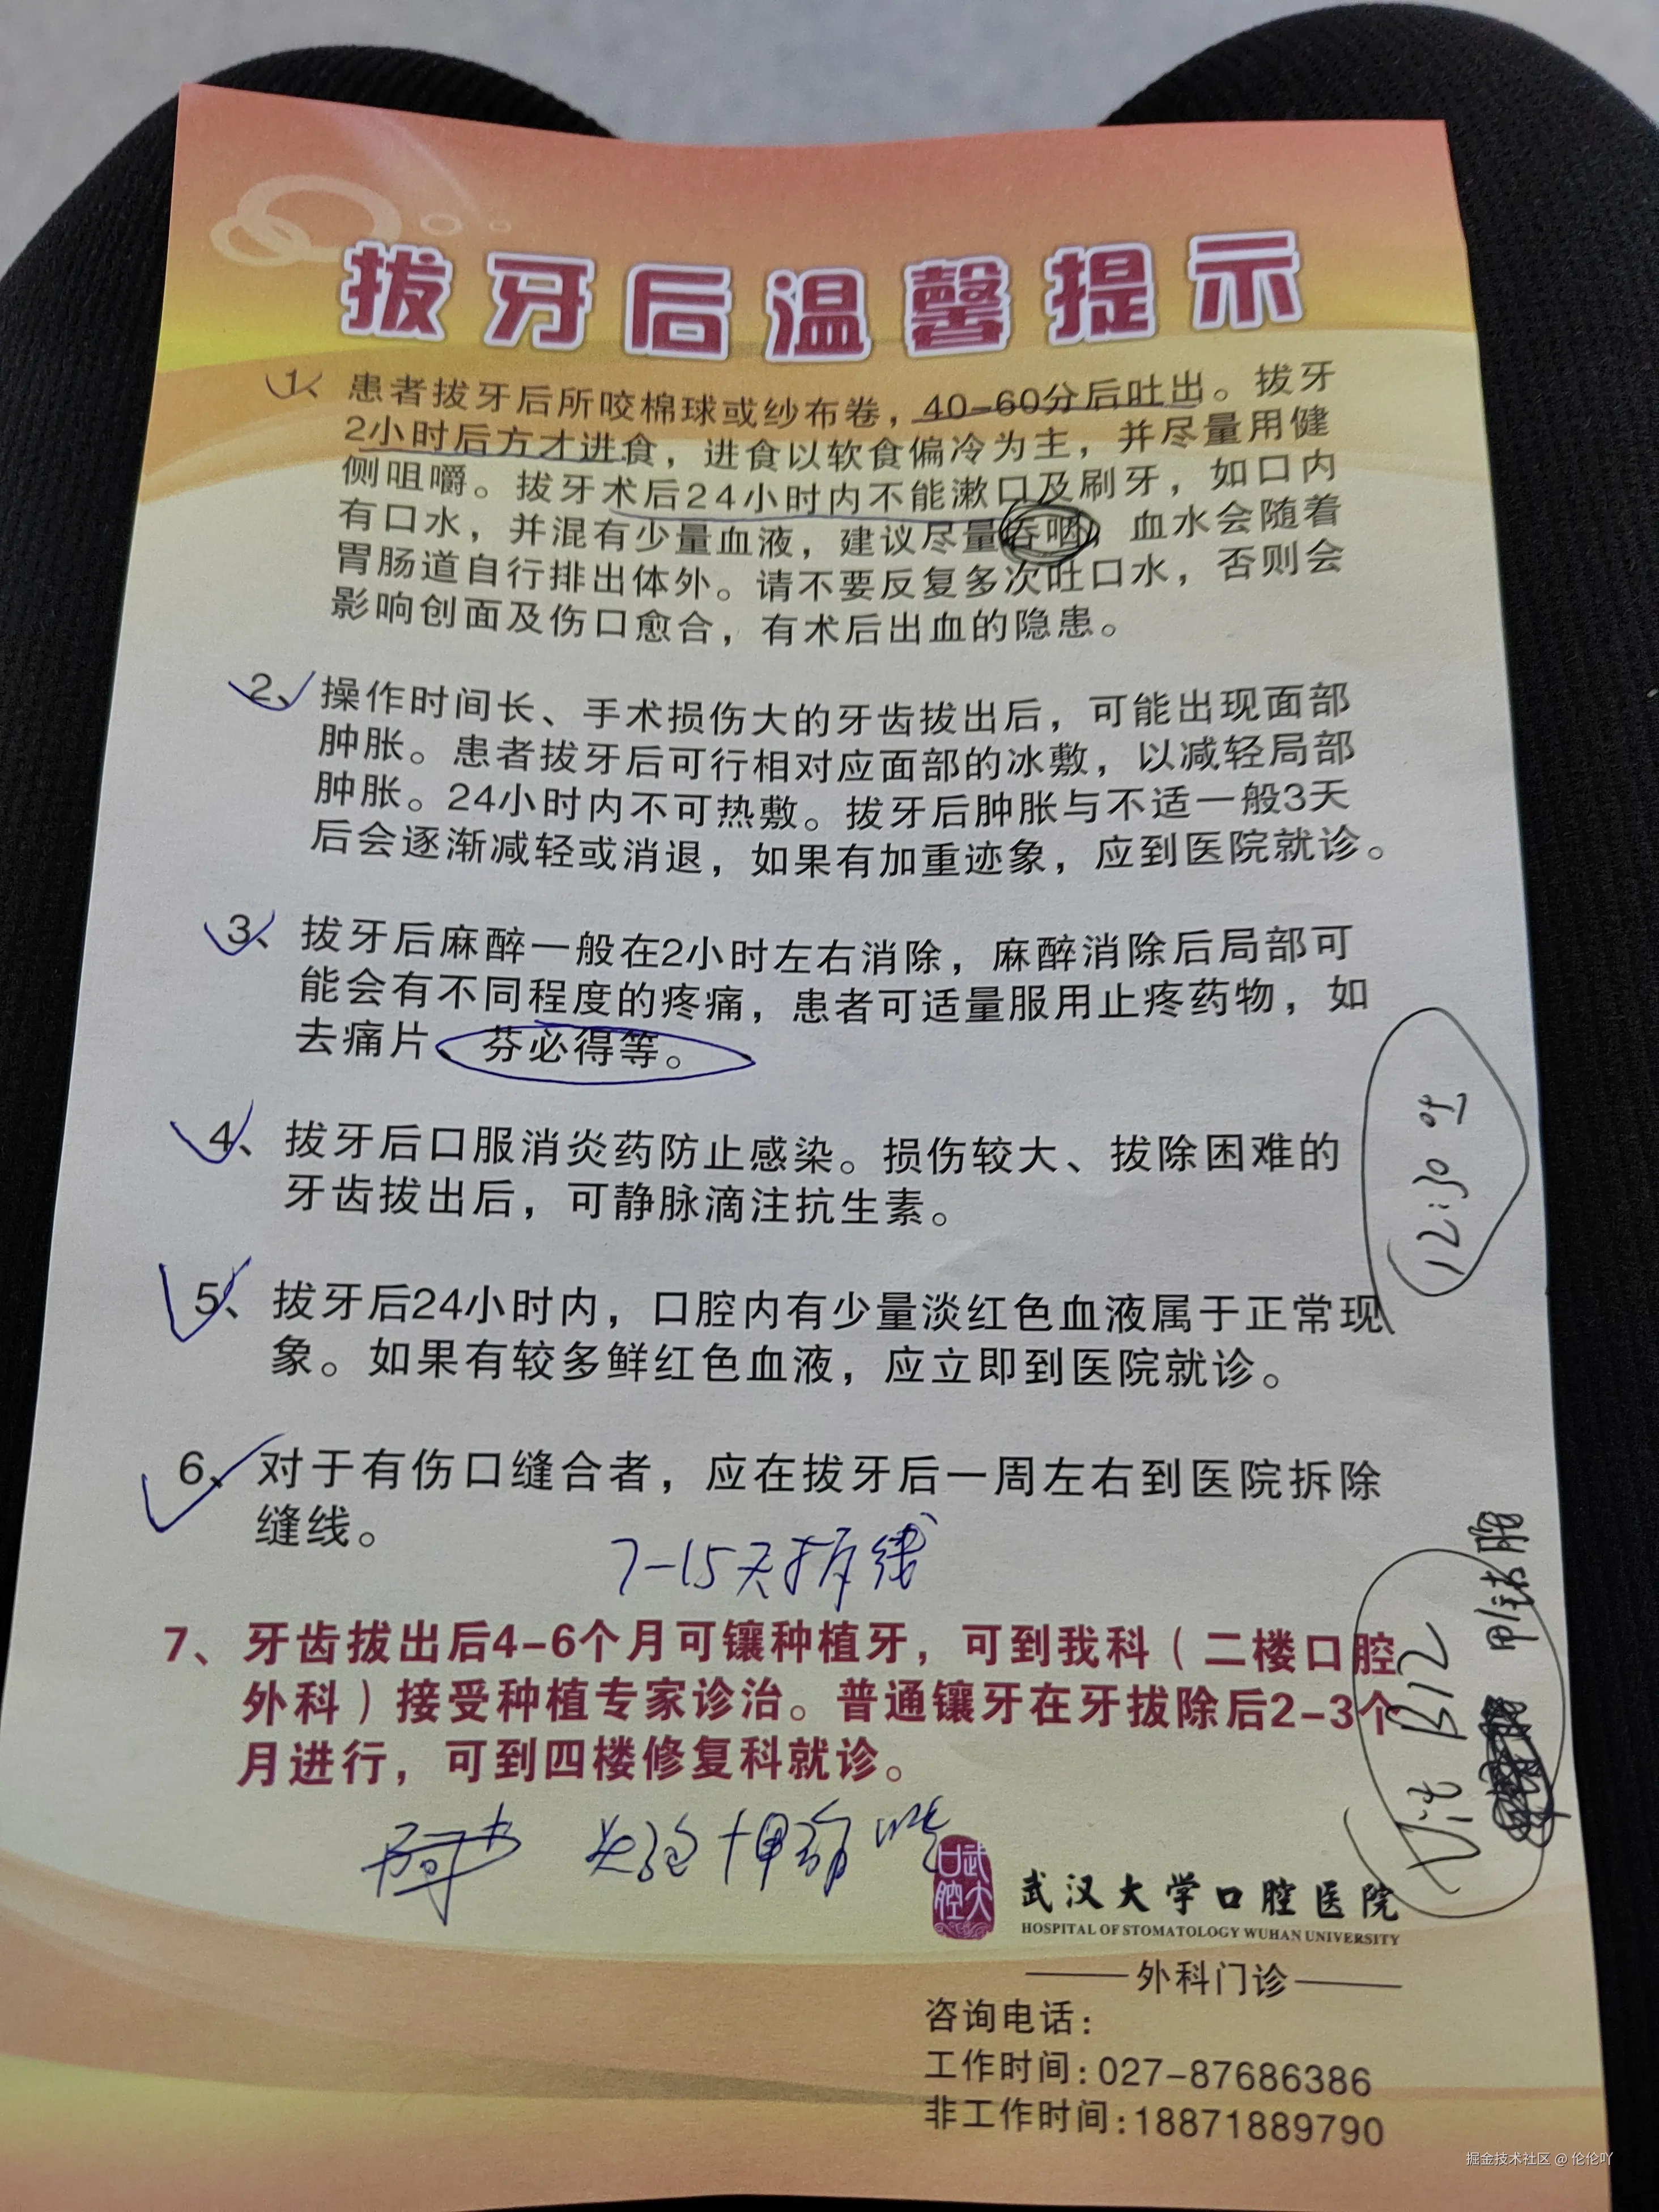 拔牙后温馨提示
1、患者拔牙后所咬棉球或纱布卷，40-60分后吐出。拔牙
2小时后方才进食，进食以软食偏冷为主，并尽量用健
侧咀嚼。拔牙术后24小时内不能漱口及刷牙，如口内
有口水，并混有少量血液，建议尽量吞咽，血水会随着
胃肠道自行排出体外。请不要反复多次吐口水，否则会
影响创面及伤口愈合，有术后出血的隐患。
2、操作时间长、手术损伤大的牙齿拔出后，可能出现面部
肿胀。患者拔牙后可行相对应面部的冰敷，以减轻局部
肿胀。24小时内不可热敷。拔牙后肿胀与不适一般3天
后会逐渐减轻或消退，如果有加重迹象，应到医院就诊。
3、拔牙后麻醉一般在2小时左右消除，麻醉消除后局部可
能会有不同程度的疼痛，患者可适量服用止疼药物，如
去痛片、芬必得等。
12:30吃
4、拔牙后口服消炎药防止感染。损伤较大、拔除困难的
牙齿拔出后，可静脉滴注抗生素。
5、拔牙后24小时内，口腔内有少量淡红色血液属于正常现
象。如果有较多鲜红色血液，应立即到医院就诊。
6、对于有伤口缝合者，应在拔牙后一周左右到医院拆除
缝线。
7-15天拆线
Vit B12
甲钴胺
7、牙齿拔出后4-6个月可镶种植牙，可到我科（二楼口腔
外科）接受种植专家诊治。普通镶牙在牙拔除后2-3个
月进行，可到四楼修复科就诊。
武大口腔
武汉大学口腔医院
HOSPITAL OF STOMATOLOGY WUHAN UNIVERSITY
外科门诊
咨询电话：
工作时间：027-87686386
非工作时间：18871889790
掘金技术社区 @ 伦伦吖